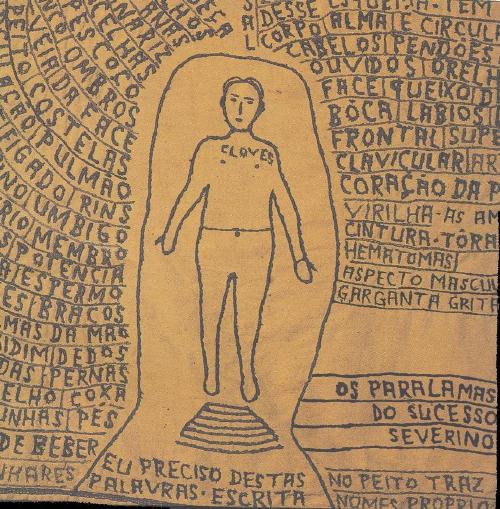 NARIZ
PESCOÇO
OMBROS
VEIA DA FACE
COSTELAS
PULMÃO
FIGADO RINS
UMBIGO
MEMBRO
POTENCIA
ESPERMO
BRAÇOS
MAS DA MÃO
DEDOS
PERNAS
COXA
PES
DE BEBER
CLOVES
EU PRECISO DESTAS
PALAVRAS · ESCRITA
SAL
DESSE
CORPO ALMA E CIRCUL
CABELOS PENDÕES
OUVIDOS ORELH
FACE QUEIXO D
BÔCA LABIOS
FRONTAL SUPE
CLAVICULAR AR
CORAÇÃO DA P
VIRILHA - AS AN
CINTURA - TÔRA
HEMATOMAS
ASPECTO MASCUL
GARGANTA GRITA
OS PARALAMAS
DO SUCESSO
SEVERINO
NO PEITO TRAZ
NOMES PROPRIO